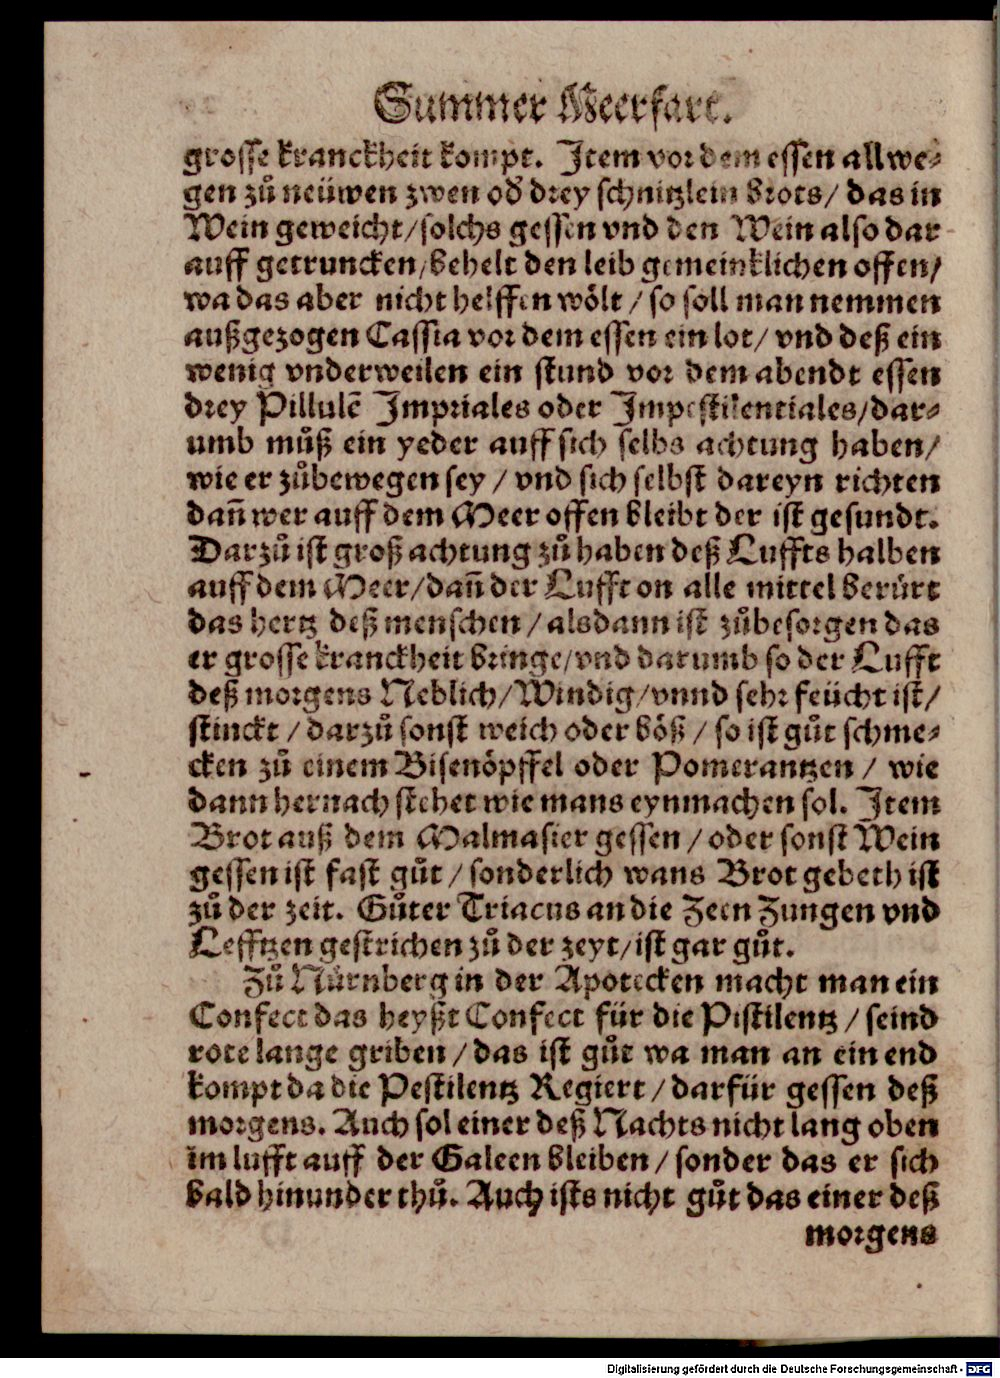 Summer Meerfart.
grosse kranckheit kompt. Item vor dem essen allwe-
gen zů neüwen zwen oď drey schnitzlein brots/ das in
Wein geweicht/solchs gessen vnd den Wein also dar
auff getruncken/behelt den leib gemeinklichen offen/
wa das aber nicht helffen wölt / so soll man nemmen
außgezogen Cassia vor dem essen ein lot/ vnd deß ein
wenig vnderweilen ein stund vor dem abendt essen
drey Pillulē Impriales oder Impestilentiales/dar-
umb můß ein yeder auff sich selbs achtung haben/
wie er zůbewegen sey / vnd sich selbst dareyn richten
dañ wer auff dem Meer offen bleibt der ist gesundt.
Darzů ist groß achtung zů haben deß Luffts halben
auff dem Meer/dañ der Lufft on alle mittel berůrt
das hertz deß menschen / alsdann ist zůbesorgen das
er grosse kranckheit bringe/vnd darumb so der Lufft
deß morgens Neblich/Windig/vnnd sehr feücht ist/
stinckt / darzů sonst weich oder böß / so ist gůt schme-
cken zů einem Bisenöpffel oder Pomerantzen / wie
dann hernach stehet wie mans eynmachen sol. Item
Brot auß dem Malmasier gessen / oder sonst Wein
gessen ist fast gůt / sonderlich wans Brot gebeth ist
zů der zeit. Gůter Triacus an die Zeen Zungen vnd
Lefftzen gestrichen zů der zeyt/ist gar gůt.
Zů Nůrnberg in der Apotecken macht man ein
Confect das heyßt Confect für die Pistilentz / seind
rote lange griben / das ist gůt wa man an ein end
kompt da die Pestilentz Regiert / darfür gessen deß
morgens. Auch sol einer deß Nachts nicht lang oben
im lufft auff der Galeen bleiben / sonder das er sich
bald hinunder thů. Auch ists nicht gůt das einer deß
morgens
Digitalisierung gefördert durch die Deutsche Forschungsgemeinschaft - DFG